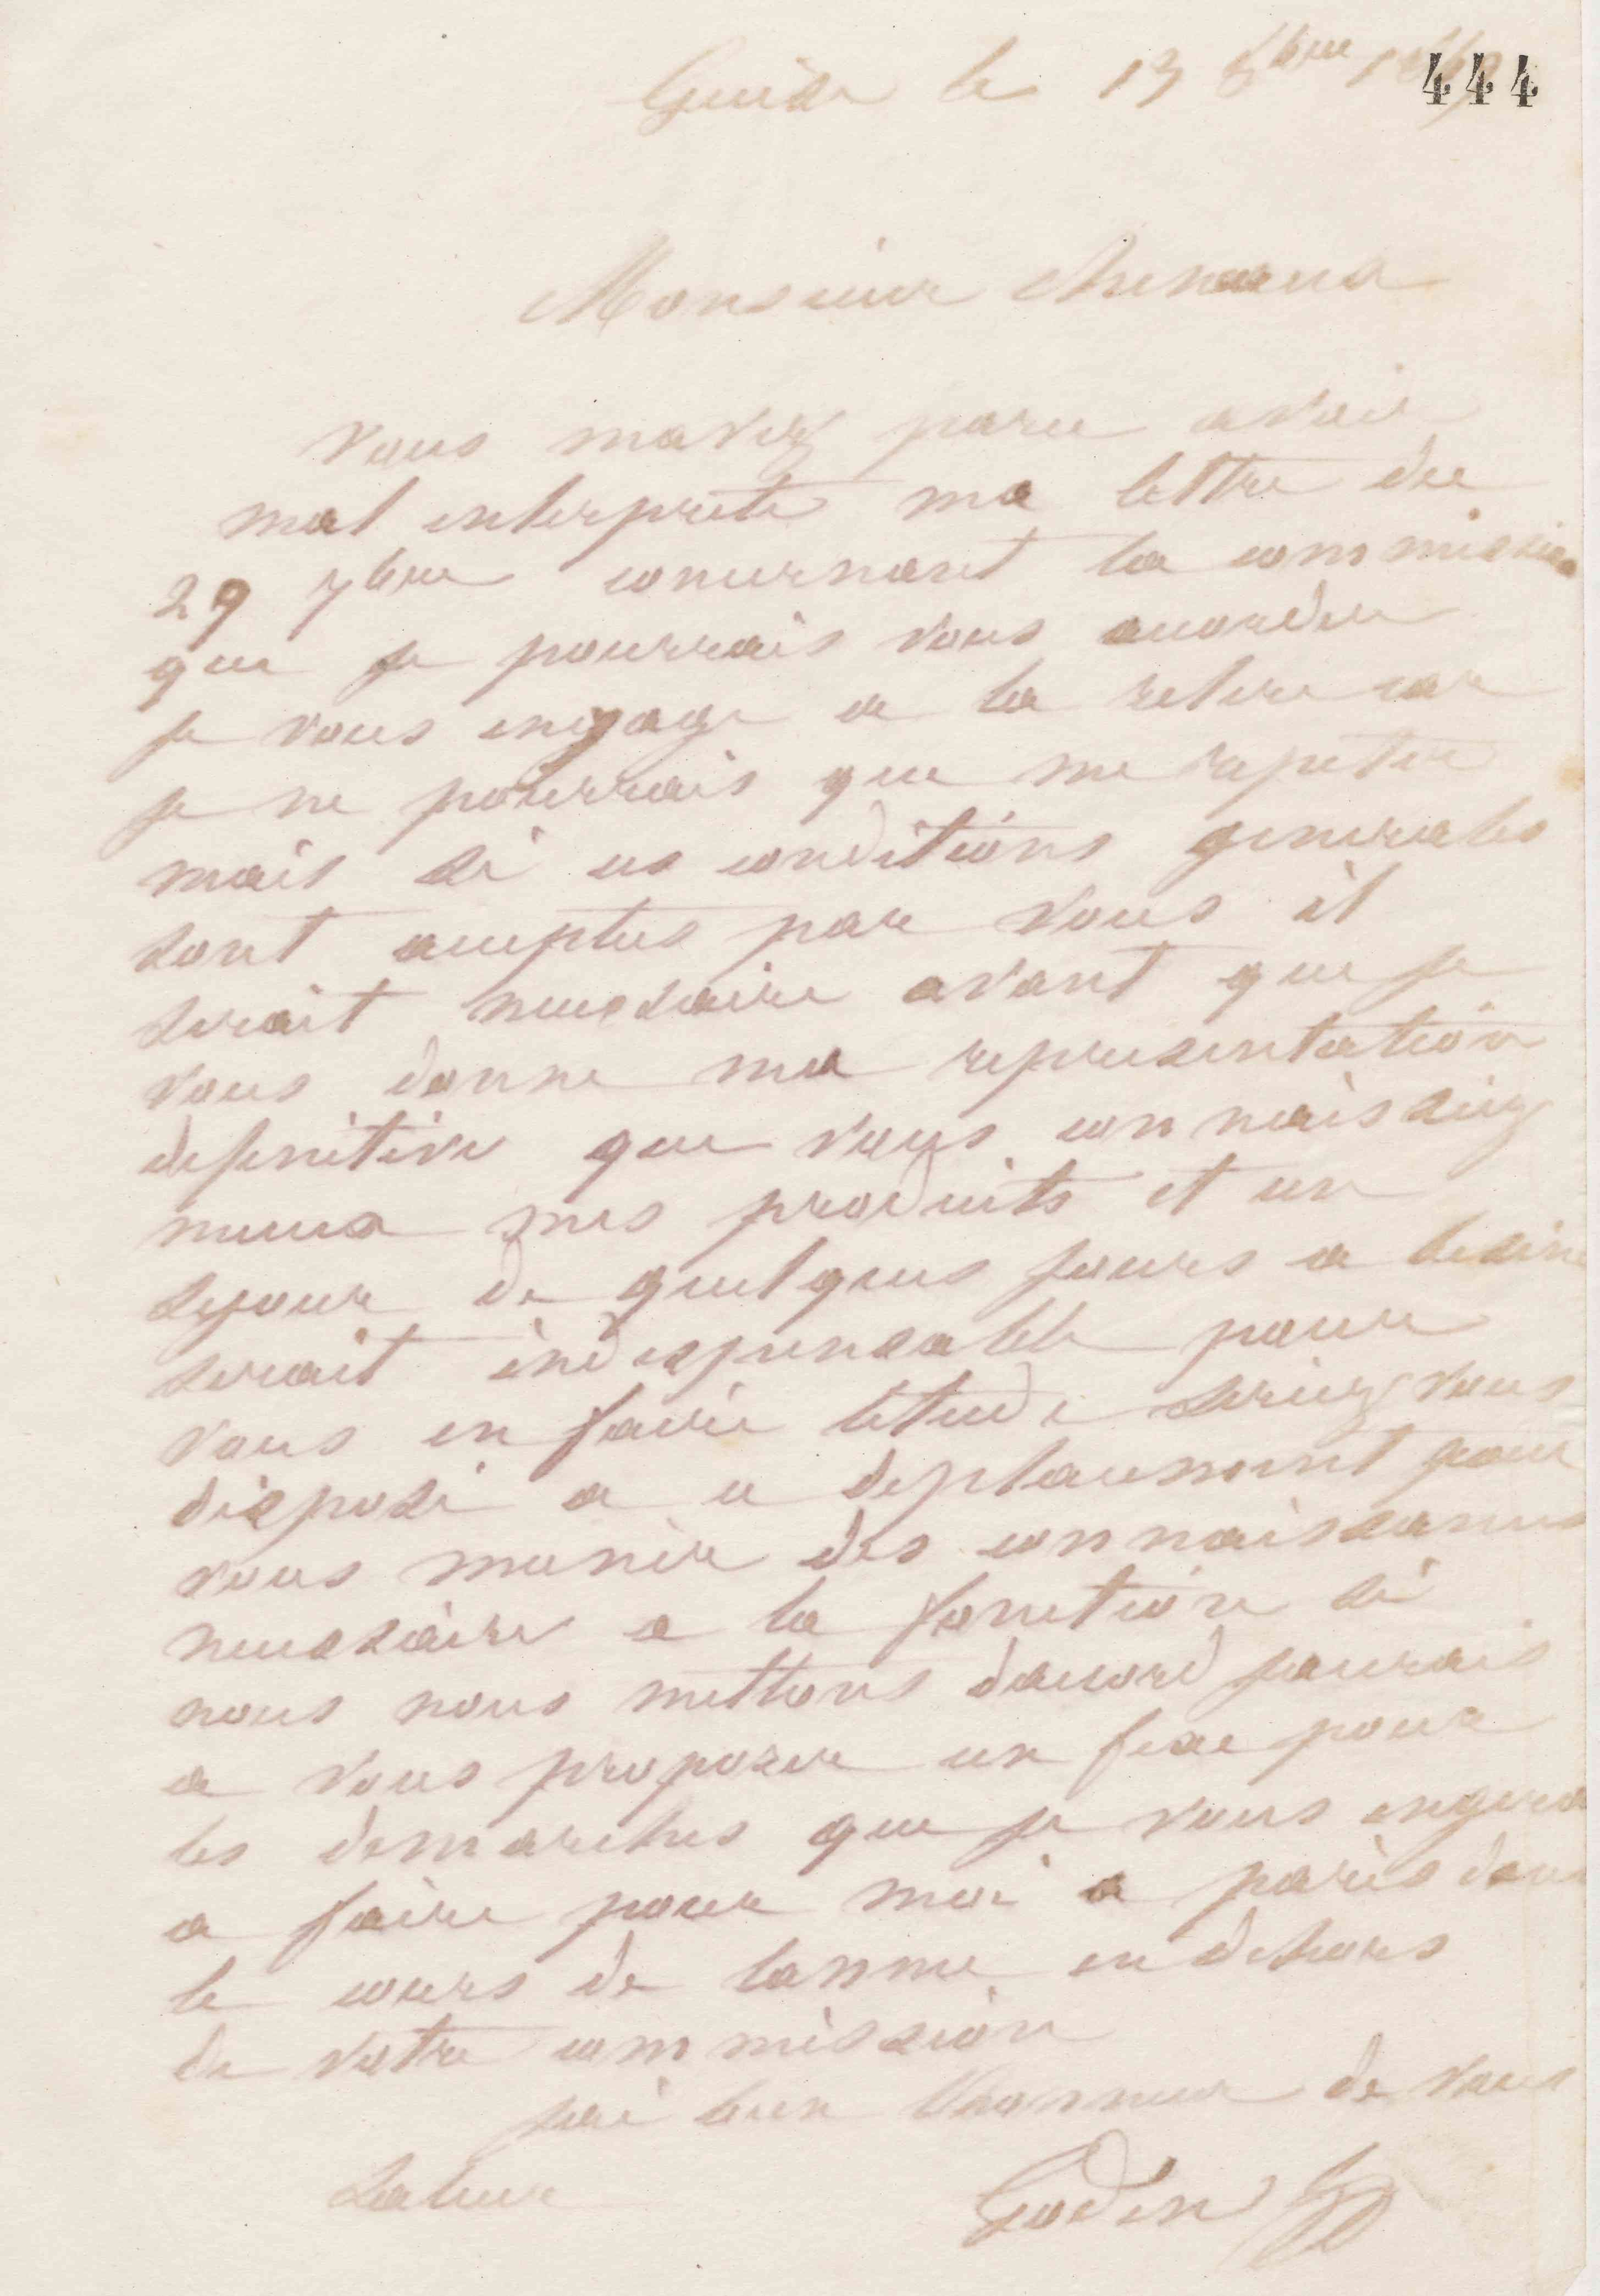 Guise le 13 8bre
444
Monsieur
vous mavez paru avoir
mal interprete ma lettre du
29 7bre concernant la commission
que je pourrais vous accorder
je vous engage a la relire car
je ne pourrais que me repeter
mais si ces conditions generales
sont acceptes par vous il
serait necessaire avant que je
vous donne ma representation
definitive que vous connaissiez
mieux mes produits et un
sejour de quelques jours a lusine
serait indispensable pour
vous en faire letude seriez vous
disposé a ce deplacement pour
vous munir des connaissances
necessaire a la fonction si
nous nous mettons daccord jaurais
a vous proposer un fixe pour
les demarches que je vous
a faire pour moi a paris dans
le cours de lannee en dehors
de votre commission
jai bien lhonneur de vous
saluer
Godin